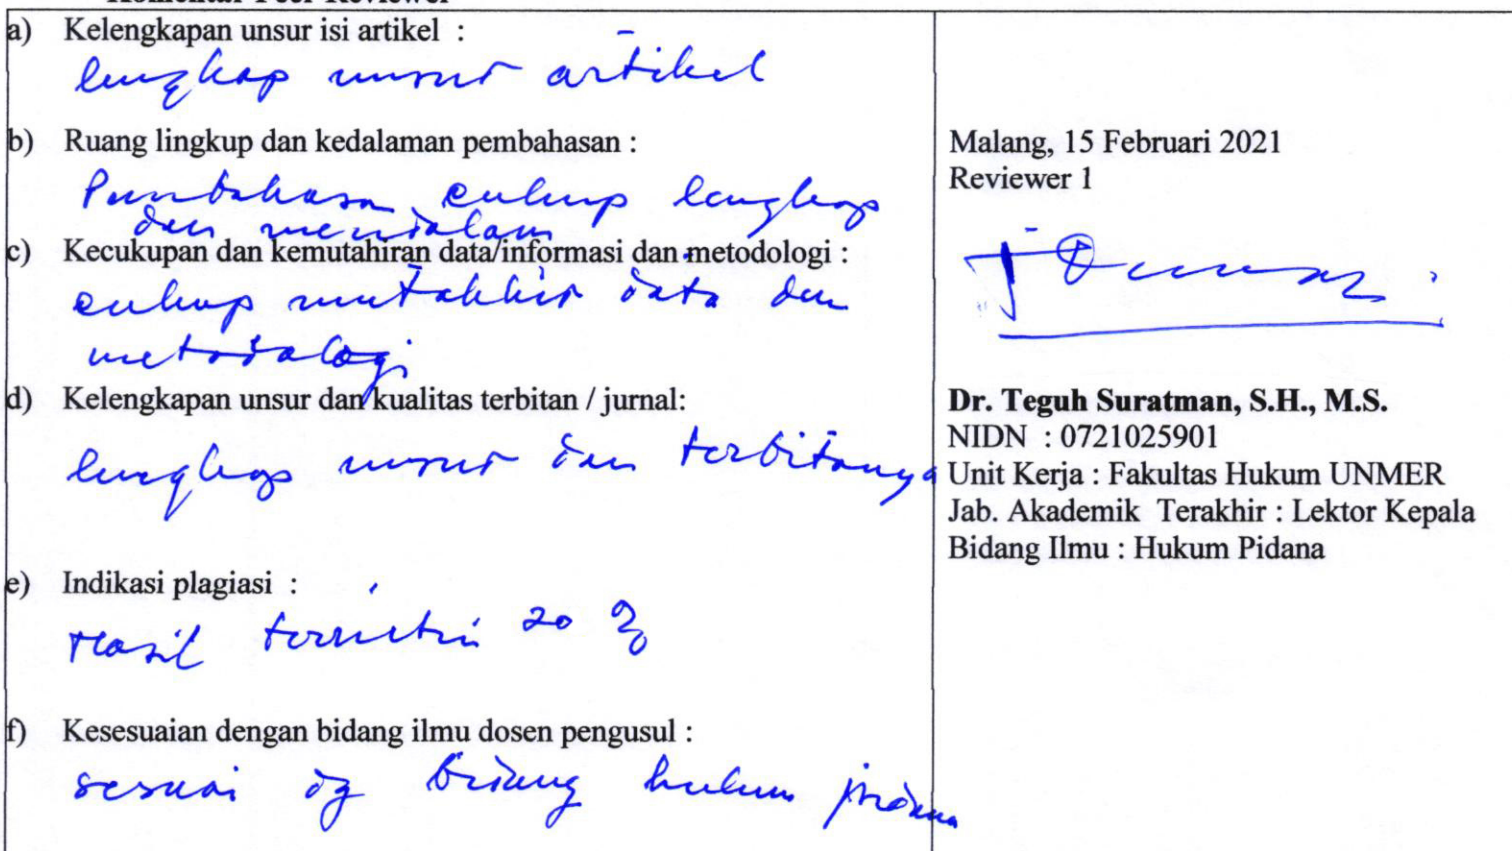 Komentar Peer Reviewer
a) Kelengkapan unsur isi artikel :
lengkap unsur artikel
b) Ruang lingkup dan kedalaman pembahasan :
Pembahasan cukup lengkap
dan mendalam
c) Kecukupan dan kemutahiran data/informasi dan metodologi :
cukup mutakhir data dan
metodologi
d) Kelengkapan unsur dan kualitas terbitan / jurnal:
lengkap unsur dan terbitanya
e) Indikasi plagiasi :
Hasil 20 %
f) Kesesuaian dengan bidang ilmu dosen pengusul :
sesuai dg bidang hukum pidana
Malang, 15 Februari 2021
Reviewer 1
Dr. Teguh Suratman, S.H., M.S.
NIDN : 0721025901
Unit Kerja : Fakultas Hukum UNMER
Jab. Akademik Terakhir : Lektor Kepala
Bidang Ilmu : Hukum Pidana